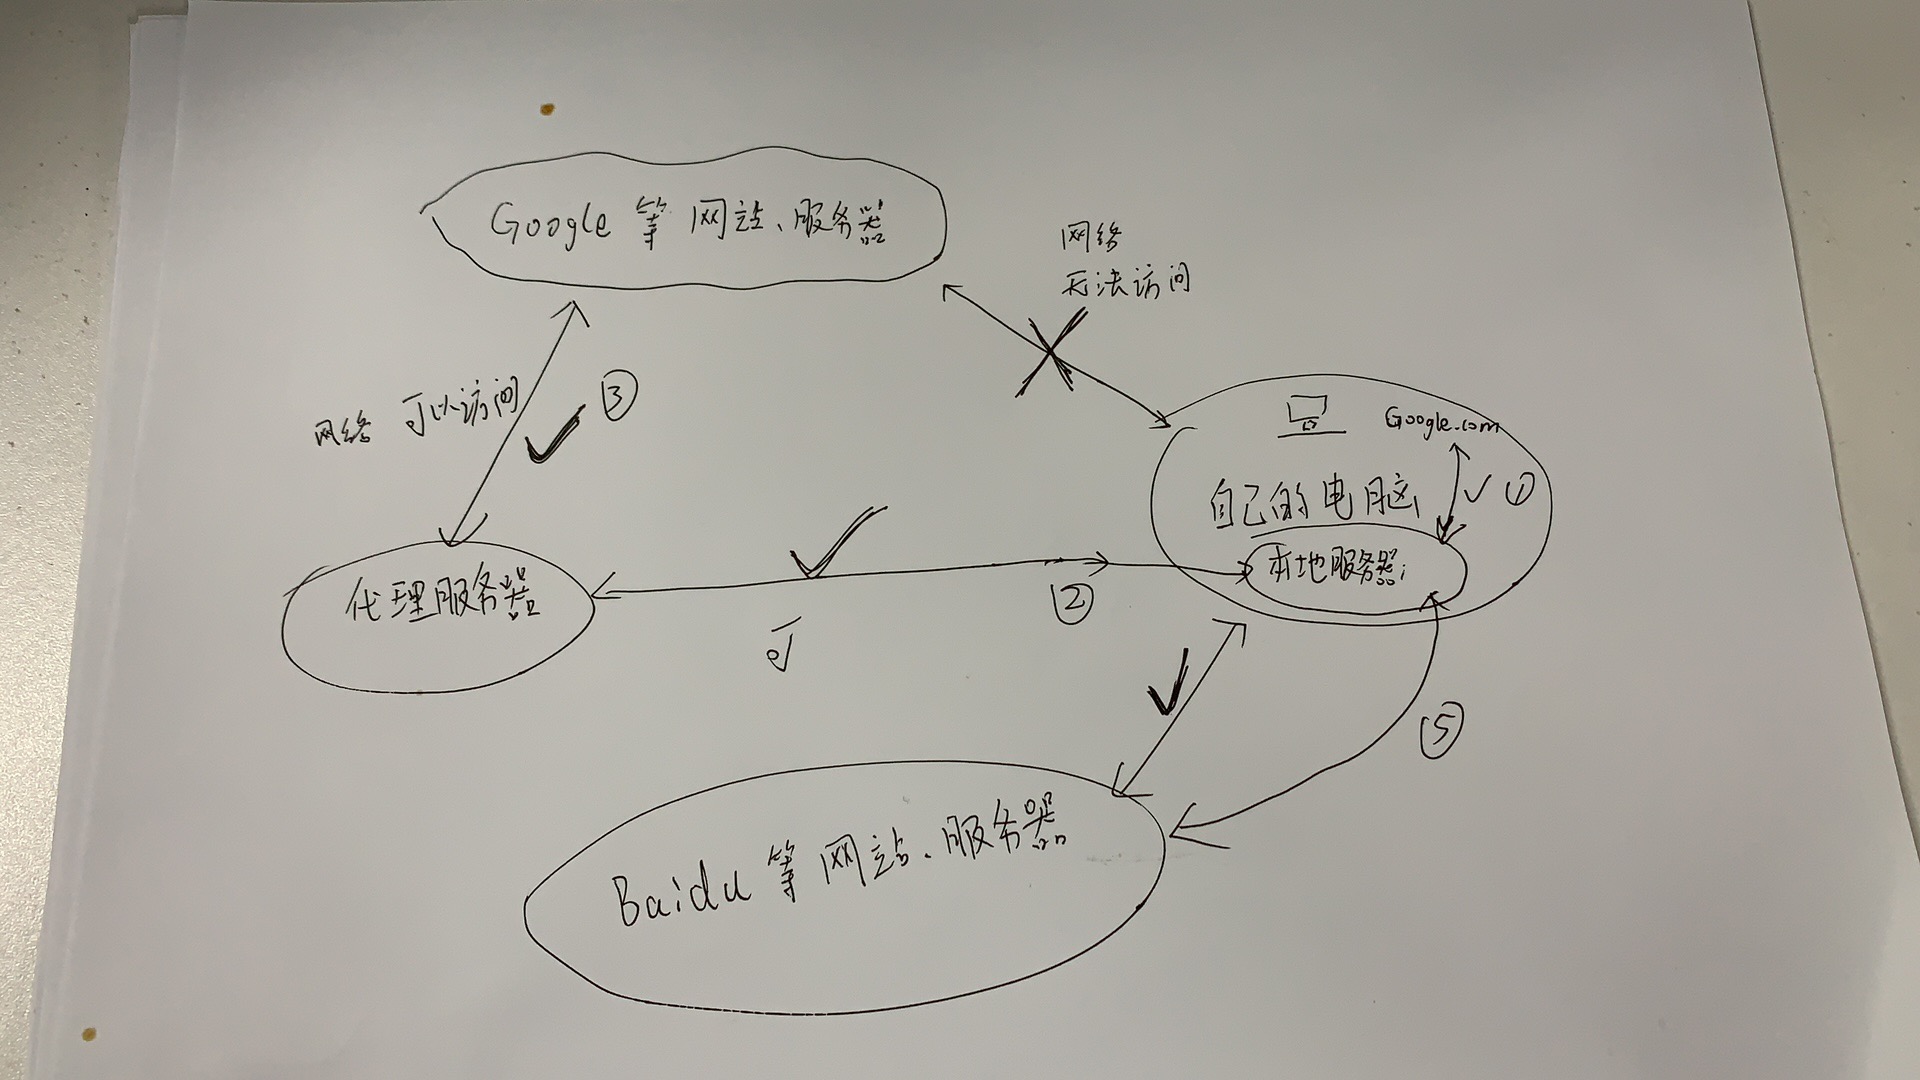 Google 等 网站、服务器
网络
无法访问
网络 可以访问
③
Google.com
自己的电脑
①
本地服务器
代理服务器
②
可
⑤
Baidu 等 网站、服务器